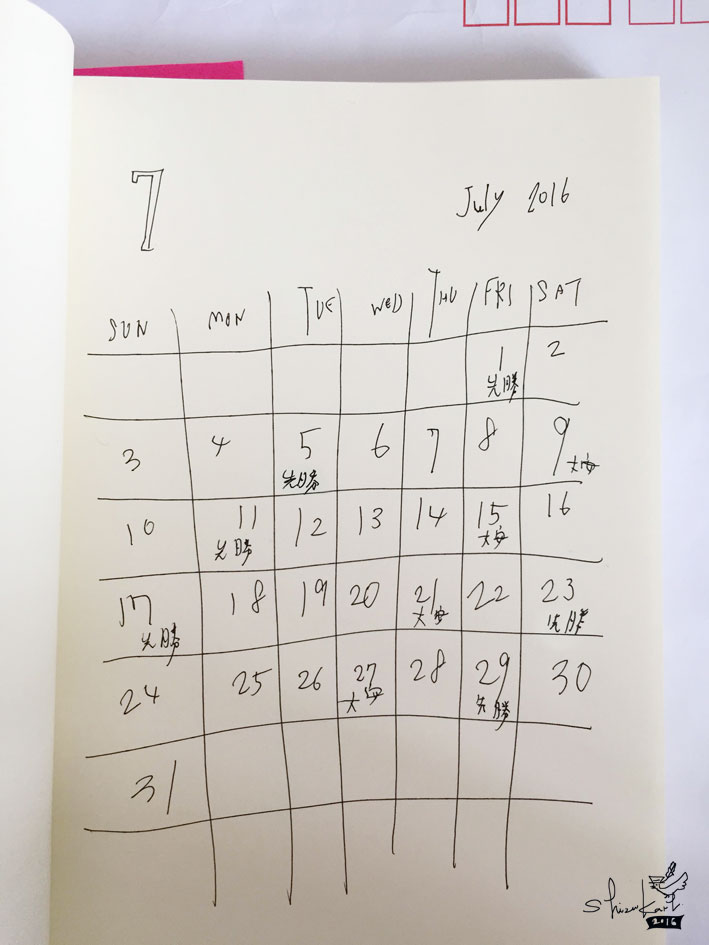 7
July 2016
SUN MON TUE WED THU FRI SAT
1 2
先勝
3 4 5 6 7 8 9
先勝 大安
10 11 12 13 14 15 16
先勝 大安
17 18 19 20 21 22 23
先勝 大安 先勝
24 25 26 27 28 29 30
大安 先勝
31
2016